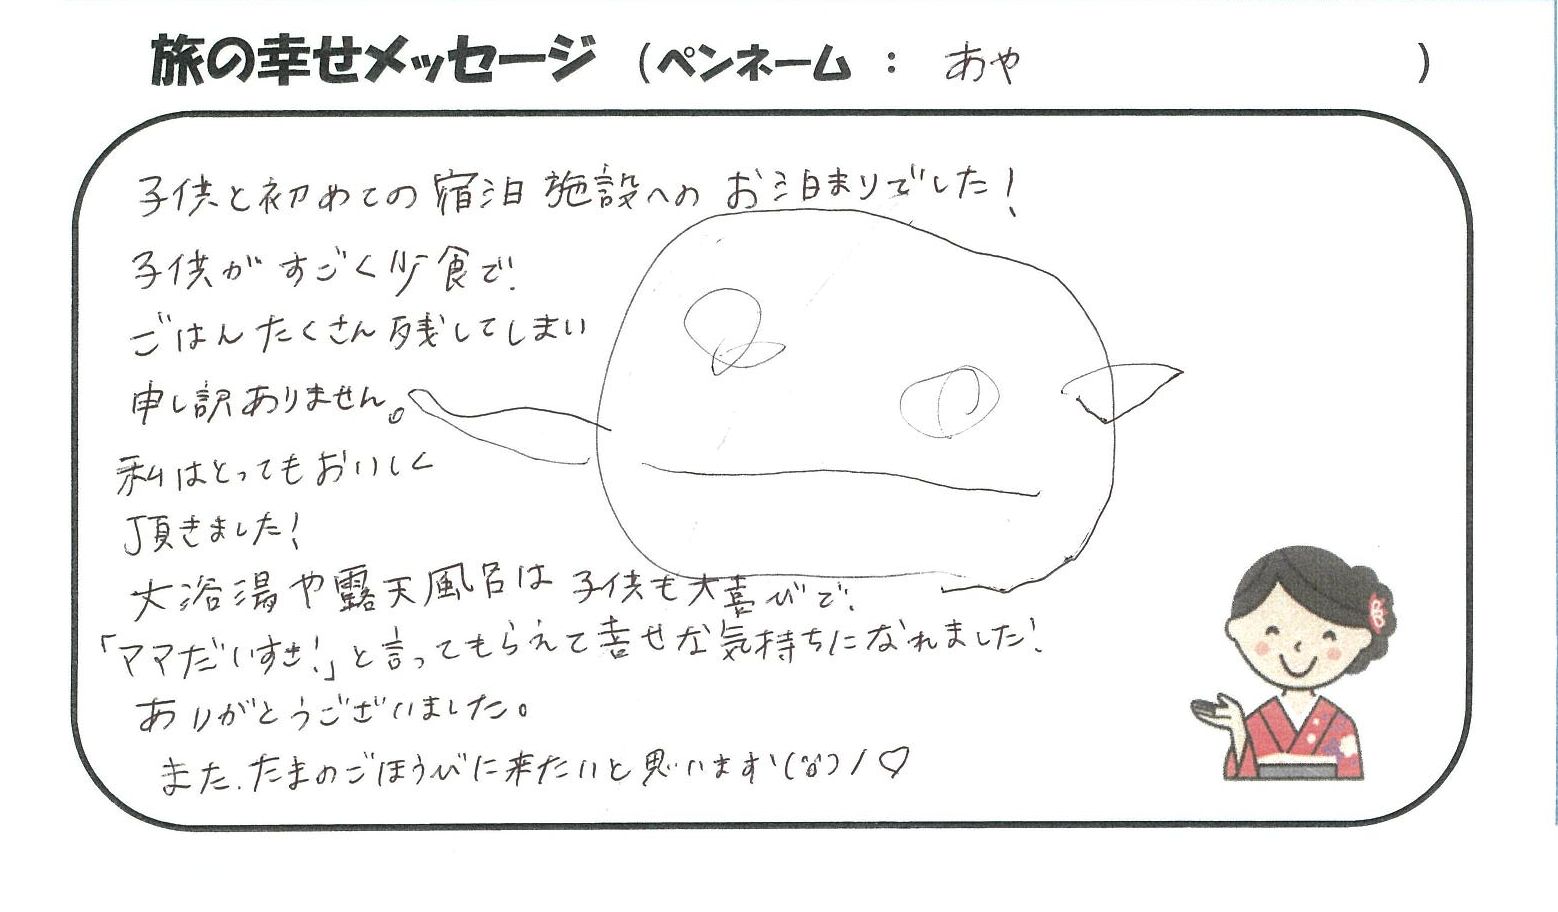 旅の幸せメッセージ (ペンネーム : あや )
子供と初めての宿泊施設へのお泊まりでした!
子供がすごく少食で、
ごはんたくさん残してしまい
申し訳ありません。
私はとってもおいしく
頂きました!
大浴湯や露天風呂は子供も大喜びで、
「ママだいすき!」と言ってもらえて幸せな気持ちになれました!
ありがとうございました。
また、たまのごほうびに来たいと思います\(^o^)/♡